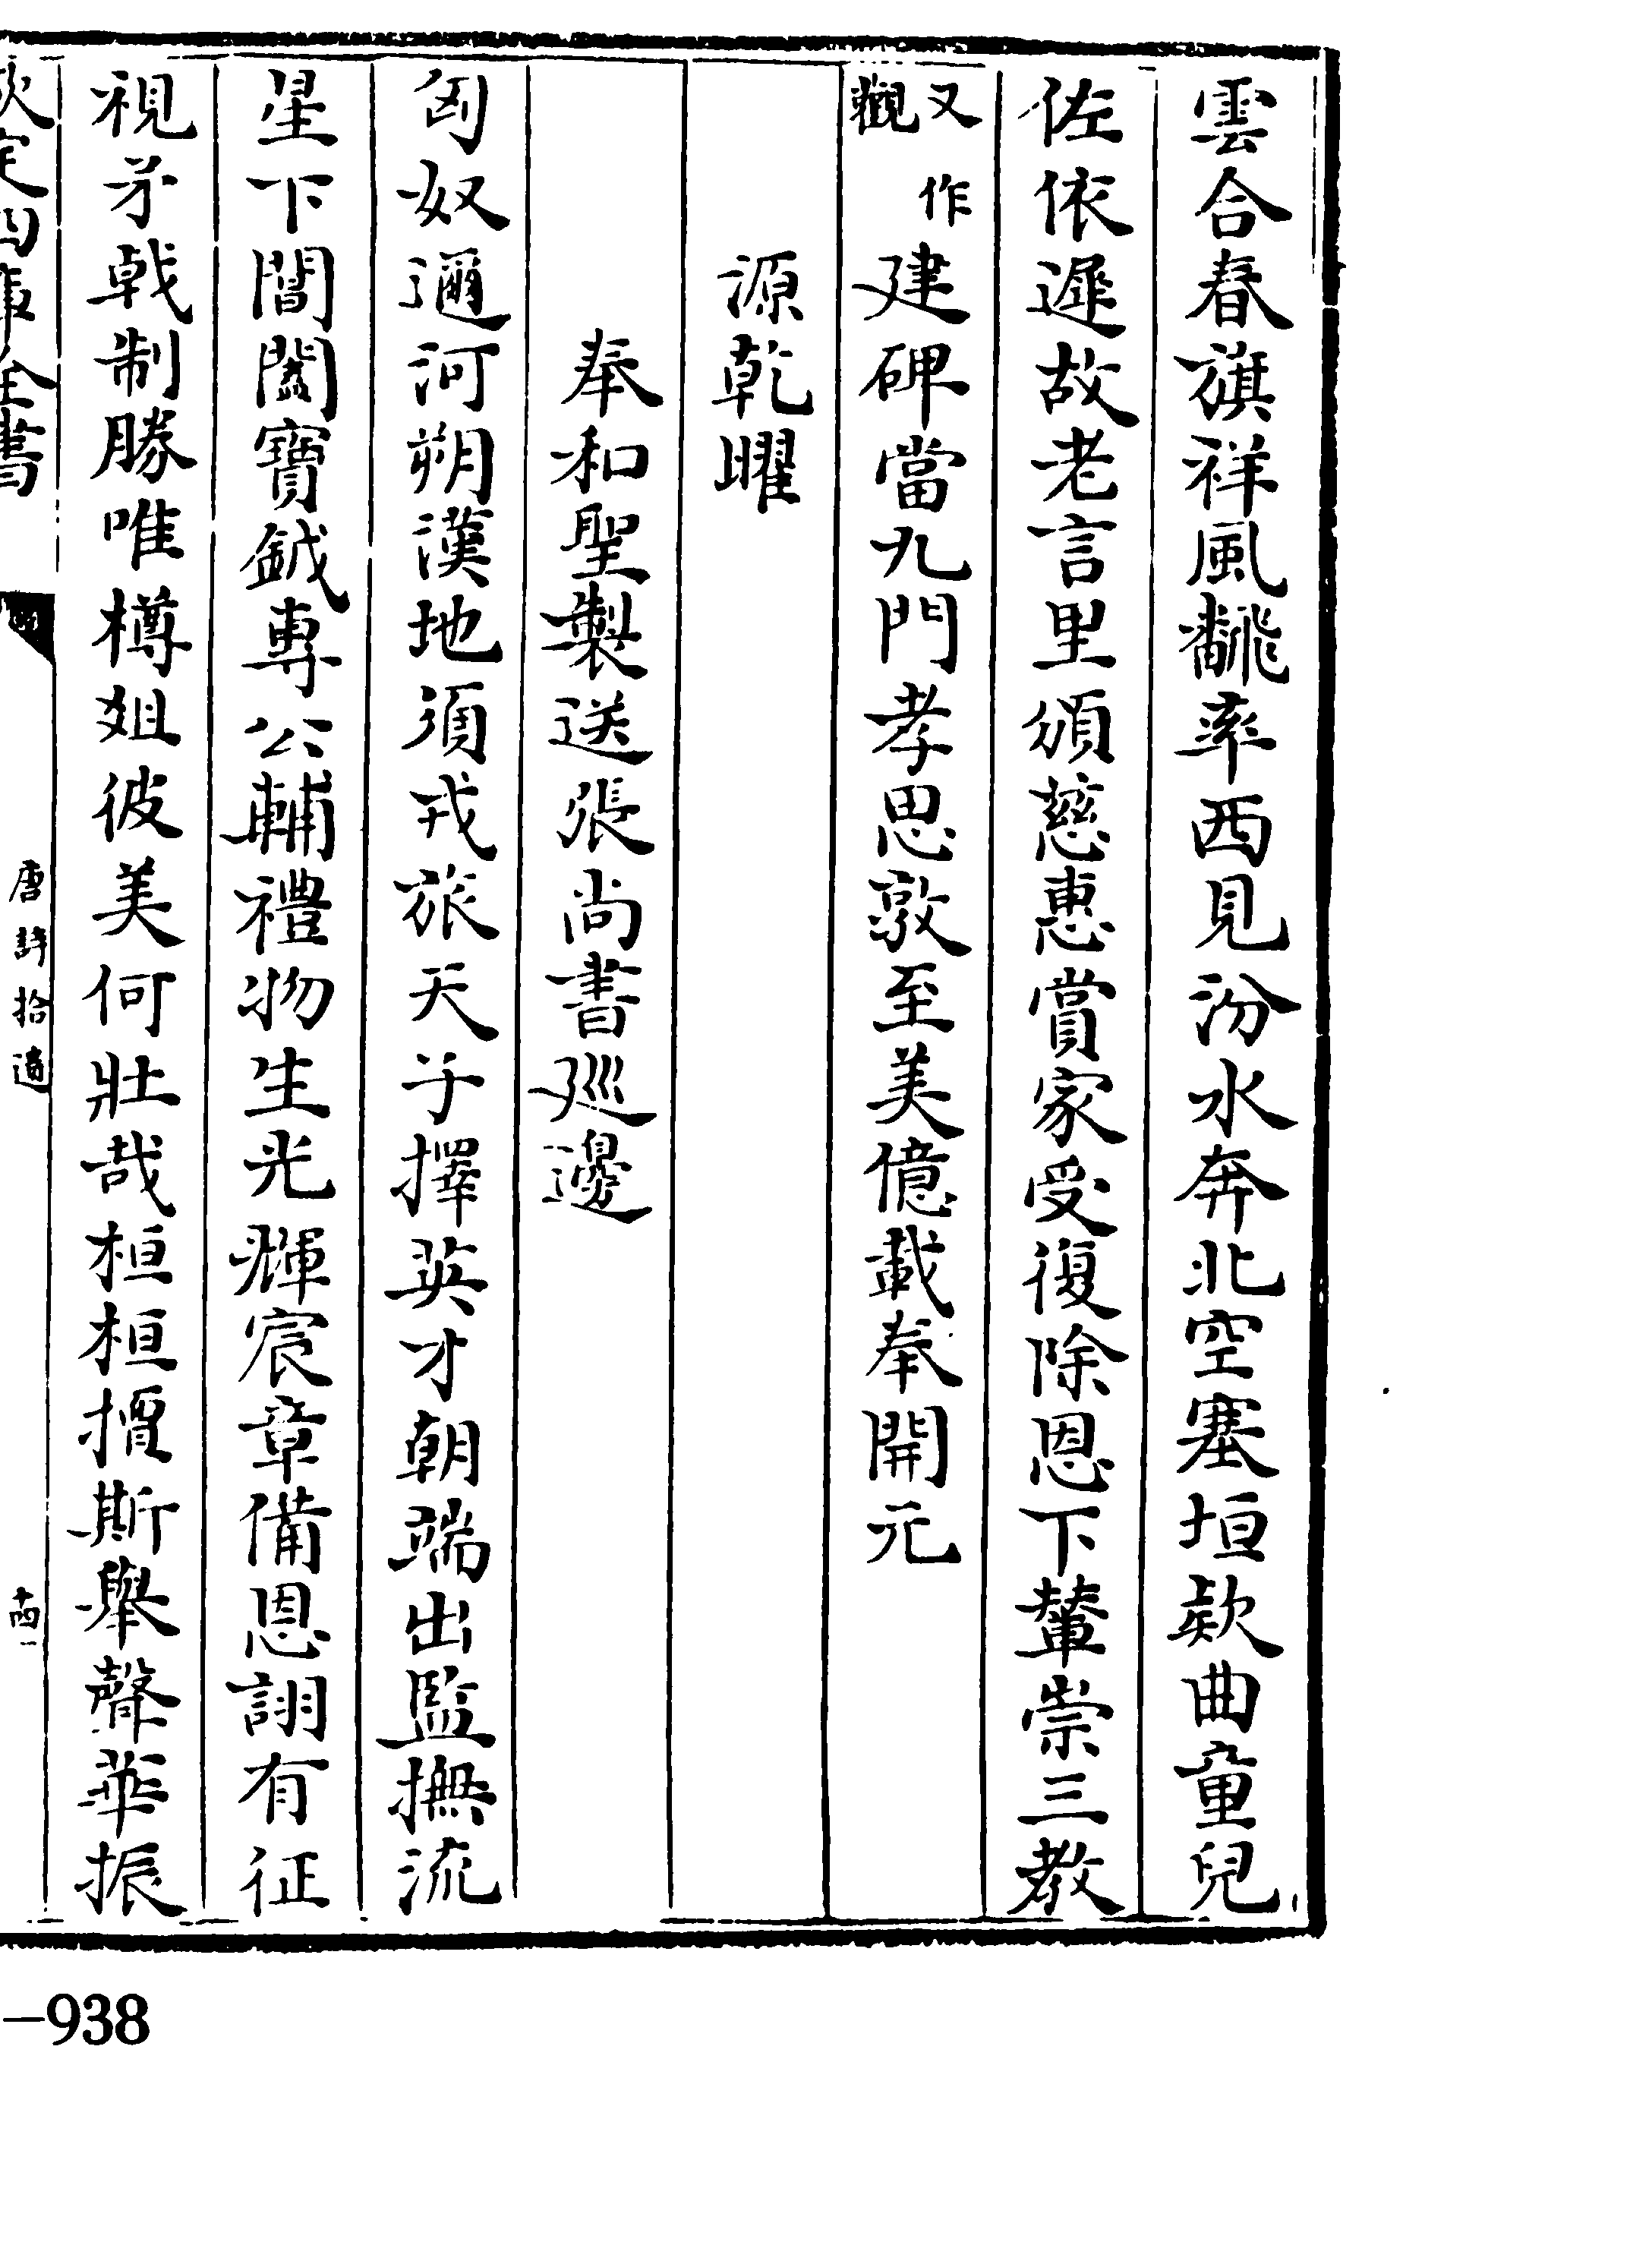 雲合春旗祥風飜翠西見汾水奔北空塞垣欵曲童兒
佐依遲故老言里頒慈惠賞家受復除恩下輦崇三教
又作觀建碑當九門孝思敦至美億載奉開元
源乾曜
奉和聖製送張尚書廵邊
匈奴邇河朔漢地須戎旅天子擇英才朝端出監撫流
星下閶闔寶鉞專公輔禮物生光輝宸章備恩詡有征
視矛戟制勝唯樽爼彼美何壯哉桓桓擅斯舉聲華振
欽定四庫全書
唐詩拾遺
十四
—938